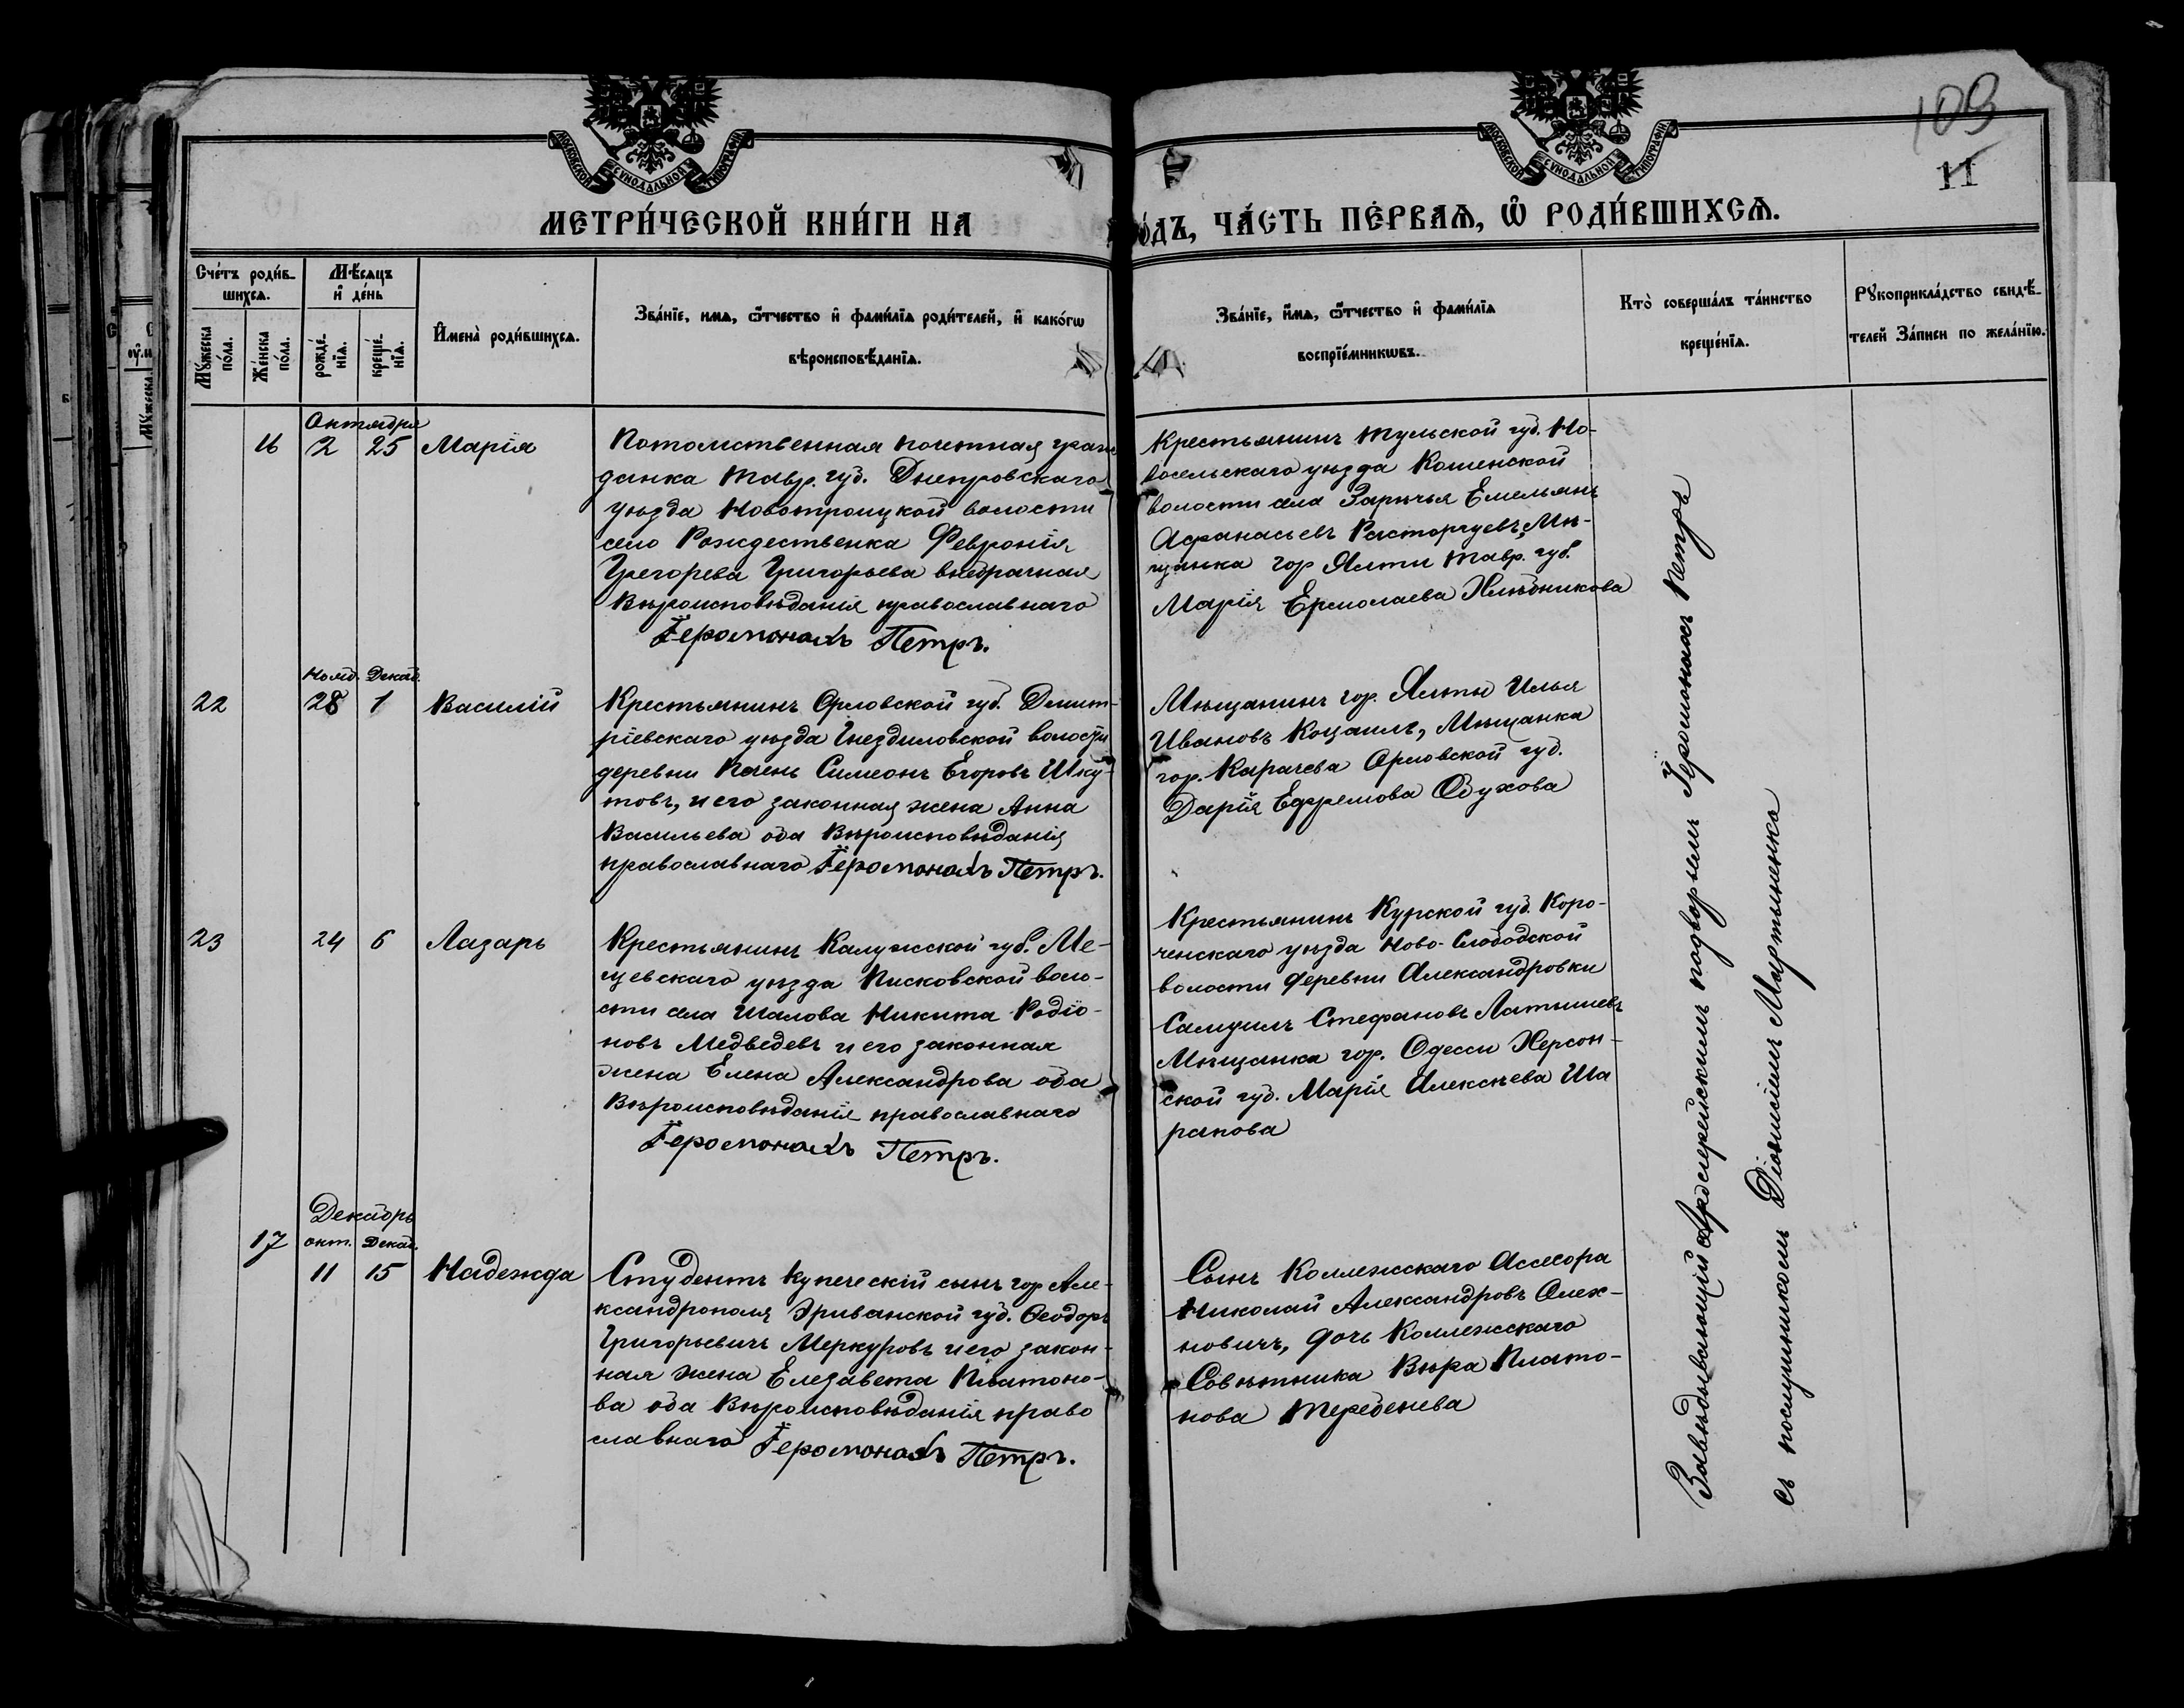 МОСКОВСКОЙ СѴНОДАЛЬНОЙ ТИПОГРАФІИ
МОСКОВСКОЙ СѴНОДАЛЬНОЙ ТИПОГРАФІИ
109
11
МЕТРИ́ЧЕСКОЙ КНИ́ГИ НА
О́ДЪ, ЧА́СТЬ ПЕ́РВАѦ, Ѡ҆ РОДИ́ВШИХСѦ.
Сче́тъ роди́в-
шихсѧ.
Мѣ́сѧцъ
и҆ де́нь
Мꙋ́жеска
по́ла.
Же́нска
по́ла.
рожде́-
нїѧ.
креще́-
нїѧ.
И҆мена̀ роди́вшихсѧ.
Зва́нїе, имѧ, ѻ҆́тчество и҆ фамилі́ѧ роди́телей, и҆ како́гѡ
вѣроисповѣ́данїѧ.
Зва́нїе, и҆́мѧ, ѻ҆́тчество и҆ фамилі́ѧ
воспрїе́мникѡвъ.
Кто̀ соверша́лъ та́инство
креще́нїѧ.
Рꙋкоприкла́дство свидѣ́-
телей За́писи по жела́нїю.
Октября
16 2 25 Марія
Потомственная почетная граж
данка Тавр. губ. Днепровскаго
уѣзда Новотроицкой волости
село Рождественка Февронія
Грегорева Григорьева внебрачная
Вѣроисповѣданія православнаго
Іеромонахъ Петръ.
Крестьянинъ Тульской губ. Но-
восельскаго уѣзда
волости села Зарѣчья Емельянъ
Афанасьевъ Расторгуевъ, Мѣ-
щанка гор Ялты Тавр. губ.
Марія Ермолаева Хлѣбникова
Нояб. Декаб.
22 28 1 Василій
Крестьянинъ Орловской губ. Дмит-
ріевскаго уѣзда Гнездиловской волости
деревни Симеонъ Егоровъ Шку-
товъ, и его законная жена Анна
Васильева оба Вѣроисповѣданія
православнаго Іеромонахъ Петръ.
Мѣщанинъ гор. Ялты Илья
Ивановъ Коцаилъ, Мѣщанка
гор. Карачева Орловской губ.
Дарія Ефремова Обухова
23 24 6 Лазарь
Крестьянинъ Калужской губ. Ме-
щевскаго уѣзда Писковской воло-
сти села Шалова Никита Родіо-
новъ Медведевъ и его законная
жена Елена Александрова оба
Вѣроисповѣданія православнаго
Іеромонахъ Петръ.
Крестьянинъ Курской губ. Коро-
ченскаго уѣзда Ново-Слободской
волости деревни Александровки
Самуилъ Стефановъ Латышевъ
Мѣщанка гор. Одессы Херсон-
ской губ. Марія Алексѣева Ша
рапова
Декабрь
17 окт. Декаб.
11 15 Надежда
Студентъ купеческій сынъ гор Але-
ксандрополя Эриванской губ. Ѳеодоръ
Григорьевичъ Меркуровъ и его закон-
ная жена Елезавета Платоно-
ва оба Вѣроисповѣданія право
славнаго Іеромонахъ Петръ.
Сынъ Коллежскаго Ассесора
Николай Александровъ Олех-
новичъ, дочь Коллежскаго
Совѣтника Вѣра Плато-
нова Теребенева
Завѣдывающій Архіерейскимъ подворьемъ Іеромонахъ Петръ
съ послушникомъ Діонисіемъ Мартыненко